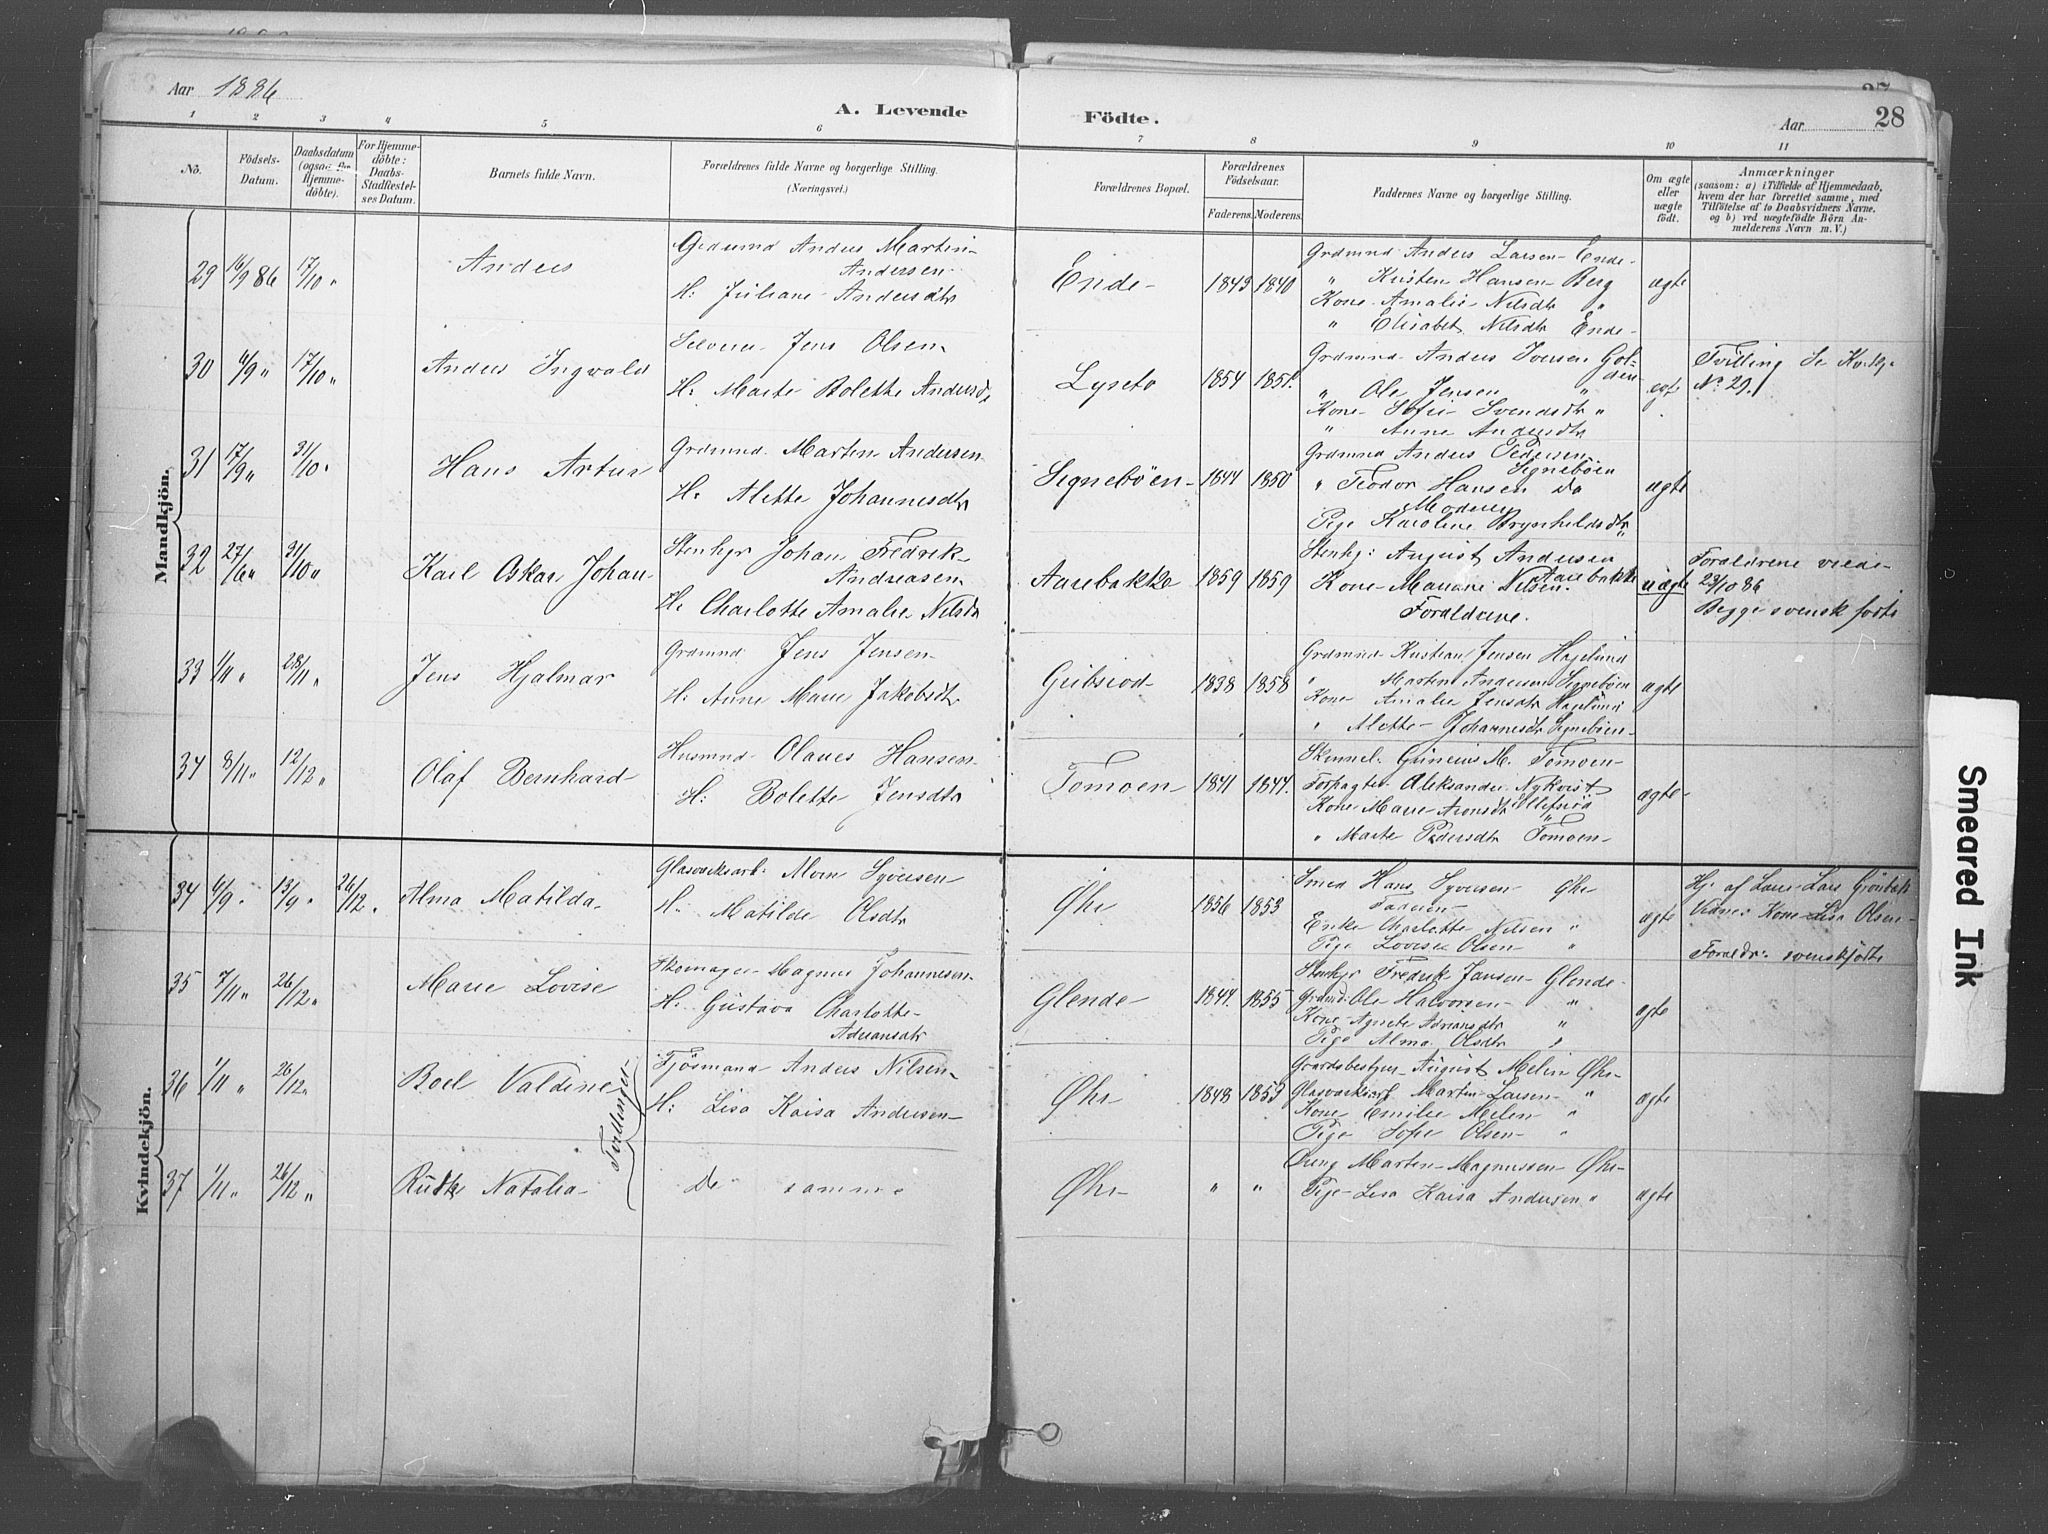 Aar 1886
A. Levende Födte.
Aar 28
1 2 3 4 5 6 7 8 9 10 11
No.
Födsels-Datum.
Daabsdatum (ogsaa for Hjemme-döbte).
For Hjemme-döbte: Daabs-Stadfæstel-ses Datum.
Barnets fulde Navn.
Forældrenes fulde Navne og borgerlige Stilling. (Næringsvei.)
Forældrenes Bopæl.
Forældrenes Födselsaar.
Faderens. Moderens.
Faddernes Navne og borgerlige Stilling.
Om ægte eller uægte födt.
Anmærkninger
(saasom: a) i Tilfælde af Hjemmedaab,
hvem der har forrettet samme, med
Tilföielse af to Daabsvidners Navne,
og b) ved uægtefödte Börn An-
melderens Navn m. V.)
Mandkjön.
29 16/9 86 17/10 " Anders
Grdmnd Anders Martin Andersen
H: Juliane Andersdtr
Ende 1843 1840
Grdmnd Anders Larsen Ende
" Kristen Hansen Berg
Kone Amalie Nilsdtr "
" Elisabet Nilsdtr Ende
ægte
30 4/9 " 17/10 " Anders Ingvald
Selveier Jens Olsen
H: Marte Bolette Andersd.
Lyseto 1854 1851.
Grdmnd Anders Iversen Golden
" Ole Jensen "
Kone Sofie Svendsdtr "
" Anne Andersdtr
ægte
Tvilling Se Kvkj. No 29.
31 17/9 " 31/10 " Hans Artur
Grdmnd. Martin Andersen
H: Alette Johannesdtr
Signebøen 1844 1850
Grdmnd Anders Pedersen Signebøen
" Teodor Hansen Do
Moderen
Pige Karoline Brynhildsdtr "
ægte
32 27/6 " 31/10 " Karl Oskar Johan
Stenhgr Johan Fredrik Andreasen
H: Charlotte Amalie Nilsd
Aarebakke 1859 1859
Stenhg: August Andersen Aarebakke
Kone Mariane Nilsen.
Forældrene.
uægte
Forældrene viede
23/10 86
Begge svensk fødte
33 1/11 " 28/11 " Jens Hjalmar
Grdmnd Jens Jensen
H: Anne Marie Jakobsdtr
1838 1858
Grdmnd Kristian Jensen Hagelund
" Martin Andersen Signebøen
Kone Amalie Jensdtr Hagelund
" Alette Johannesdtr Signebøen
ægte
34 8/11 " 12/12 " Olaf Bernhard
Husmnd Olaves Hansen
H: Bolette Jensdtr
Tomoen 1841 1844.
M. Tomoen
Forpagter Aleksander Nykvist
Kone Marie Aronsdtr "
" Marte Pedersdtr Tomoen
ægte
Kvindekjön.
34 4/9 " 13/9 " 26/12 " Alma Matilda
Glasværksarb: Alvin Syversen
H: Matilde Olsdtr
Øhr 1856 1853
Smed Hans Syversen Øhr
Faderen
Enke Charlotte Nilsen "
Pige Lovise Olsen "
ægte
Hj. af Lars Grönbæk
Vidne: Kone Lisa Olsen
Forældr: svenskfødte
35 7/11 " 26/12 " Marie Lovise
Skomager Magnus Johannesen
H: Gustava Charlotte Adriansdtr
Glende 1844. 1855
Stenhgr Fredrik Jansen Glende
Grdmd: Ole Halvorsen "
Kone Agnete Adriansdtr "
Pige Alma Olsdtr "
ægte
36 1/11 " 26/12 " Boel Valdine
Tvillinger
Fjösmand Anders Nilsen
H: Lisa Kaisa Andersen
Øhr 1848 1853
Gaardsbestyrer August Melin Øhr
Glasværksarb Martin Larsen "
Kone Emilie Melin "
Pige Sofie Olsen "
ægte
37 1/11 " 26/12 " Rutk Natalia
De samme
Øhr " "
Dreng Martin Magnussen Øhr
Pige Lisa Kaisa Andersen "
ægte
Smeared Ink